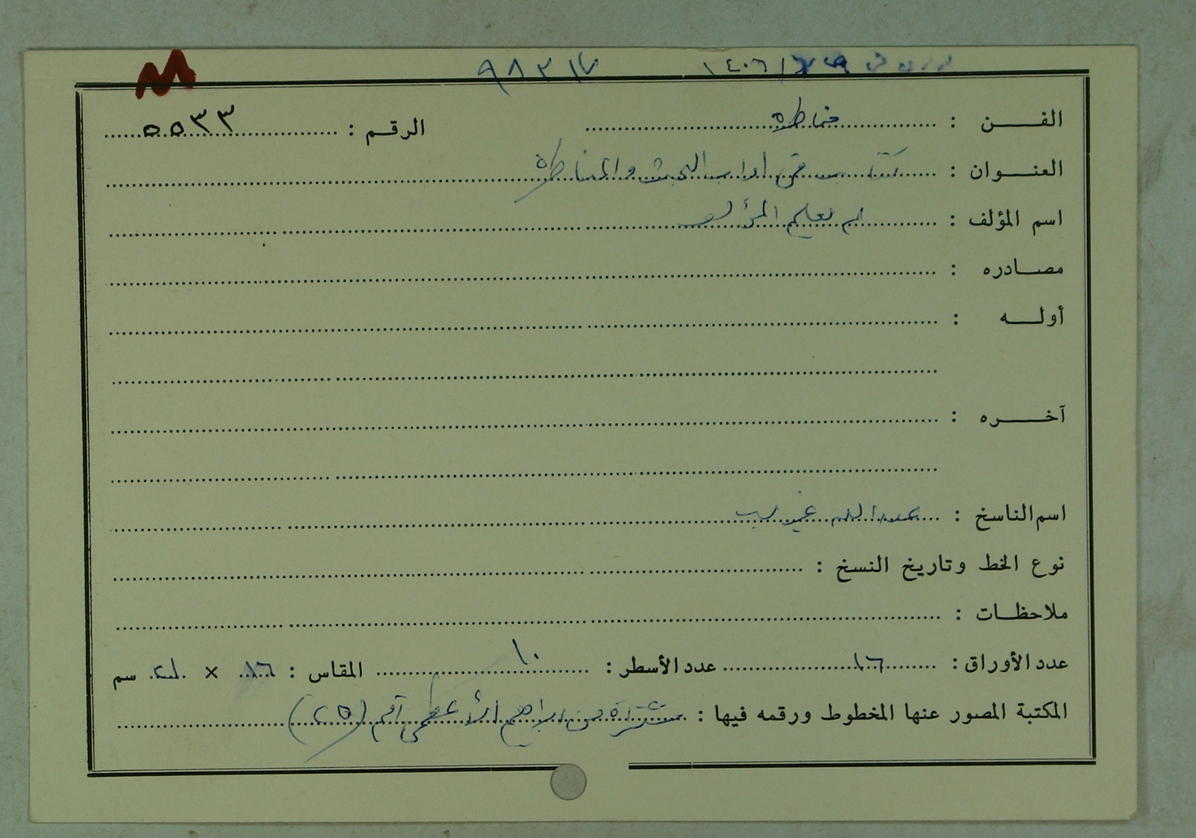 ٩٨٣١٧ ١٤٠٦/
الفـــن : مناظرة الرقـم : ٥٥٣٣
العنــوان : كتاب في اداب البحث والمناظرة
اسم المؤلف : لم يعلم المؤلف
مصـادره :
أولــه :
آخـــره :
اسم الناسخ : عبد الله غريب
نوع الخط وتاريخ النسخ :
ملاحظـات :
عدد الأوراق : ١٦ عدد الأسطر : ١٠ المقاس : ١٦ × ٢١ سم
المكتبة المصور عنها المخطوط ورقمه فيها : مشتراة من ابراهيم الأعظمي (٢٥)